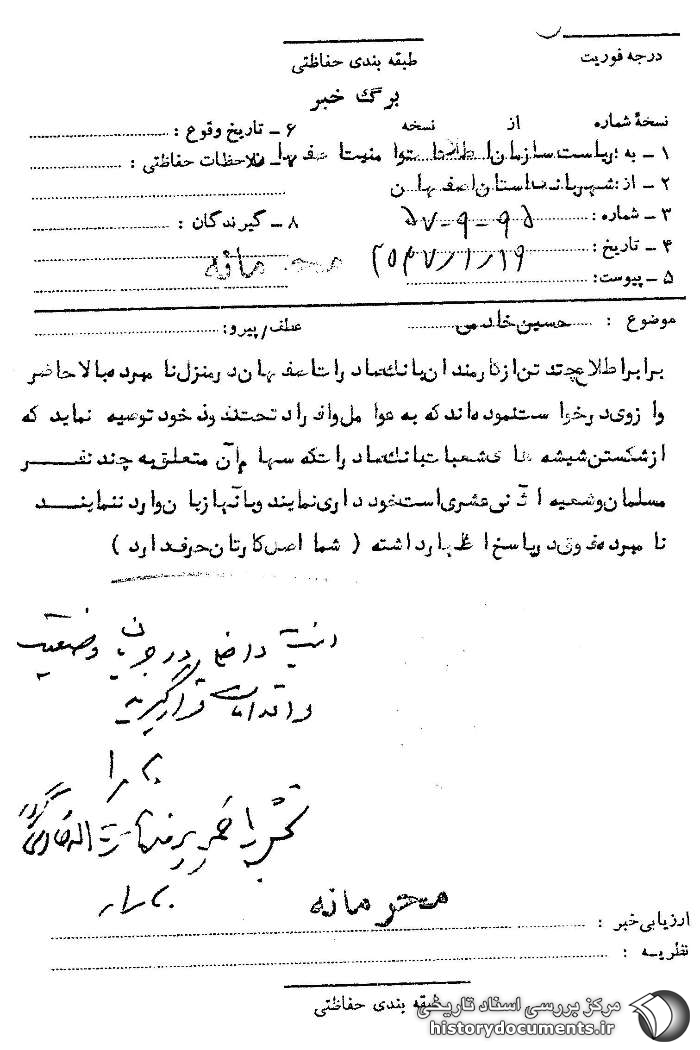 درجه فوریت
طبقه بندی حفاظتی
برگ خبر
نسخهٔ شماره از نسخه
۱ ـ به : ریاست سازمان اطلاعات و امنیت اصفهان
۲ ـ از : شهربانی استان اصفهان
۳ ـ شماره :
۴ ـ تاریخ : ۲۵۳۷/۱/۱۹
۵ ـ پیوست:
۶ ـ تاریخ وقوع :
۷ ـ ملاحظات حفاظتی :
۸ ـ گیرندگان :
محرمانه
موضوع : حسین خادمی
عطف/پیرو:
برابر اطلاع چند تن از کارمندان بانک صادرات اصفهان در منزل نامبرده بالا حاضر
و از وی درخواست نموده اند که به عوامل و افراد تحت نفوذ خود توصیه نماید که
از شکستن شیشه های شعبات بانک صادرات که سهام آن متعلق به چند نفر
مسلمان و شعیه اثنی عشری است خودداری نمایند و به آنها زیان وارد ننمایند
نامبرده فوق در پاسخ اظهار داشته ( شما اصل کارتان حرف دارد )
در جریان وضعیت
و اقدامات قرار گیرند
محرمانه
ارزیابی خبر :
نظریه :
طبقه بندی حفاظتی
مرکز بررسی اسناد تاریخی
historydocuments.ir